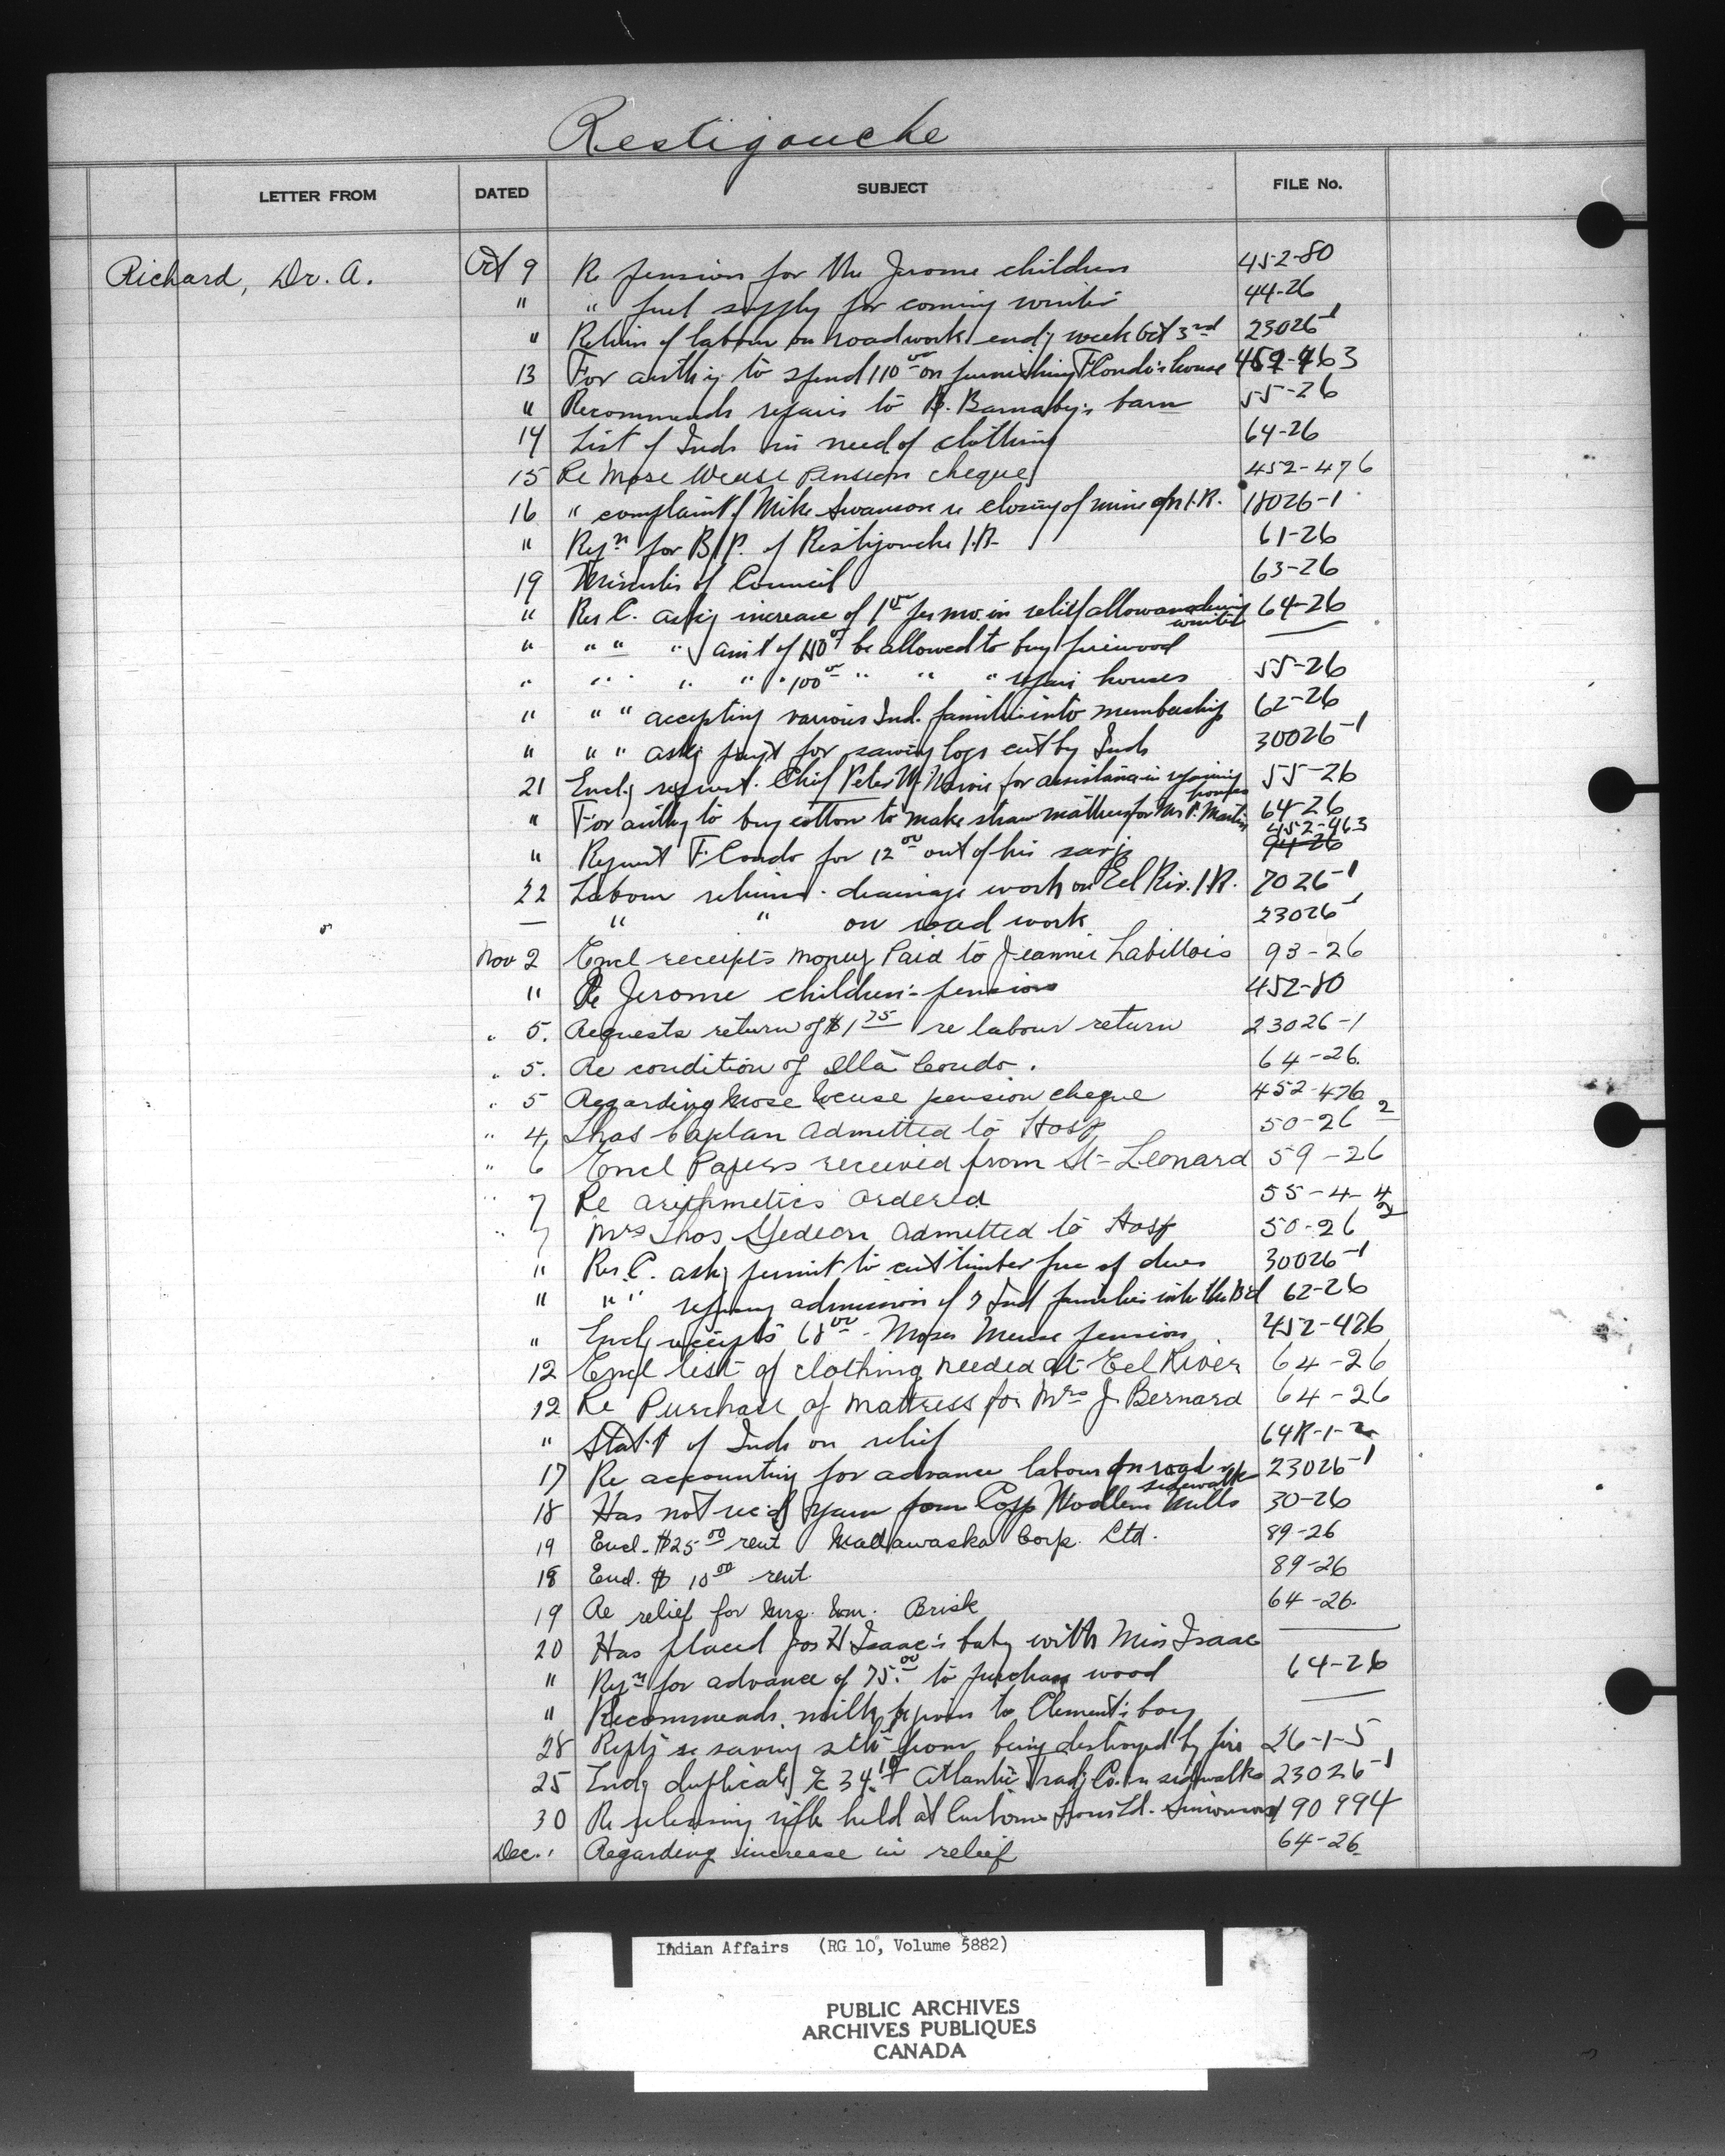 Restigouche
LETTER FROM DATED SUBJECT FILE No.
Richard, Dr. A. Oct 9 Re pension for the Jerome children 452-80
" " fuel supply for coming winter 44-26
" Return of labour on roadwork endg week Oct 3rd 23026-1
13 For authy to spend 110.00 on furnishing F Condo's house 452-463
" Recommends repairs to B. Barnaby's barn 55-26
14 List of Inds in need of clothing 64-26
15 Re Mose Weuse Pension cheque 452-476
16 " complaint of Mike Swanson re closing of mine on I.R. 18026-1
" Reqn for B/P. of Restigouche I.R. 61-26
19 Minutes of Council 63-26
" Res C. askg increase of 1.00 per mo. in relief allowance during winter 64-26
" " " " amt of be allowed to buy firewood
" " " " " 100.00 " " " repair houses 55-26
" " " accepting various Ind. families into membership 62-26
" " " askg payt for sawing logs cut by Inds 30026-1
21 Enclg request Chief Peter for assistance in repairing house 55-26
" For authy to buy cotton to make straw mattress for Mrs P. Martin 64-26
" Request F. Condo for 12.00 out of his savgs 452-463 94-26
22 Labour returns - drainage work on Eel Riv. I.R. 7026-1
— " " on road work 23026-1
Nov 2 Encl receipts money Paid to Jeannie Labillois 93-26
" Re Jerome children's pensions 452-80
" 5. Requests return of $1.75 re labour return 23026-1
" 5. Re condition of Ella Condo. 64-26.
" 5 Regarding Mose Weuse pension cheque 452-476
" 4, Thos Caplan admitted to Hosp 50-26-2
" 6 Encl Papers received from St-Leonard 59-26
" 7 Re arithmetics ordered 55-4-4
" 7 Mrs Thos Gedeon admitted to Hosp 50-26-2
" Res. C. askg permit to cut timber free of dues 30026-1
" " " refusing admission of 7 Ind families into the Bd 62-26
" Enclg receipts 68.00 - Moses Meuse pension 452-476
12 Encl list of clothing needed at Eel River 64-26
12 Re Purchase of mattress for Mrs J. Bernard 64-26
" Stat.t of Inds on relief 64R-1-2
17 Re accounting for advance labour on road & sidewalk 23026-1
18 Has not recd yarn from Copp Woollen Mills 30-26
19 Encl. $25.00 rent Madawaska Corp. Ltd. 89-26
18 Encl. $10.00 rent 89-26
19 Re relief for Mrs. Wm. Brisk 64-26.
20 Has placed Jos H Isaac's baby with Miss Isaac
" Reqn for advance of 75.00 to purchase wood 64-26
" Recommends milk be given to Clement's boy
28 Reptg re saving from being destroyed by fire 26-1-5
25 Enclg duplicate a/c 34.10 Atlantic Tradg Co. re sidewalks 23026-1
30 Re releasing rifle held at Customs 190994
Dec. 1 Regarding increase in relief 64-26
Indian Affairs (RG 10, Volume 5882)
PUBLIC ARCHIVES
ARCHIVES PUBLIQUES
CANADA